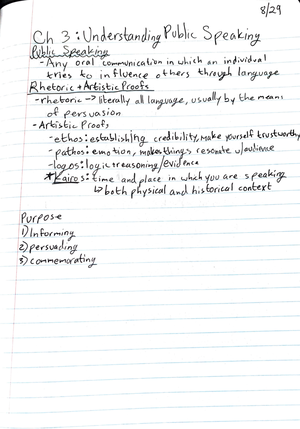 8/29
Ch 3: Understanding Public Speaking
Public Speaking
- Any oral communication in which an individual
tries to influence others through language
Rhetoric + Artistic Proofs
- rhetoric -> literally all language, usually by the means
of persuasion
- Artistic Proofs
- ethos: establishing credibility, make yourself trustworthy
- pathos: emotion, makes things resonate w/audience
- logos: logic + reasoning/evidence
* Kairos: time and place in which you are speaking
↳ both physical and historical context
Purpose
1) Informing
2) persuading
3) commemorating